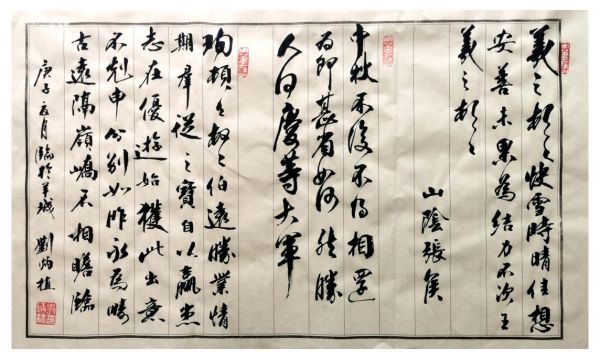 羲之頓首快雪時晴佳想
安善未果為結力不次王
羲之頓首
山陰張侯
中秋不復不得相還
為即甚省如何然勝
人何慶等大軍
珣頓々首々伯遠勝業情
期羣從之寶自以羸患
志在優遊始獲此出意
不剋申分別如昨永為疇
古遠隔嶺嶠不相瞻臨
庚子月臨於羊城 劉植